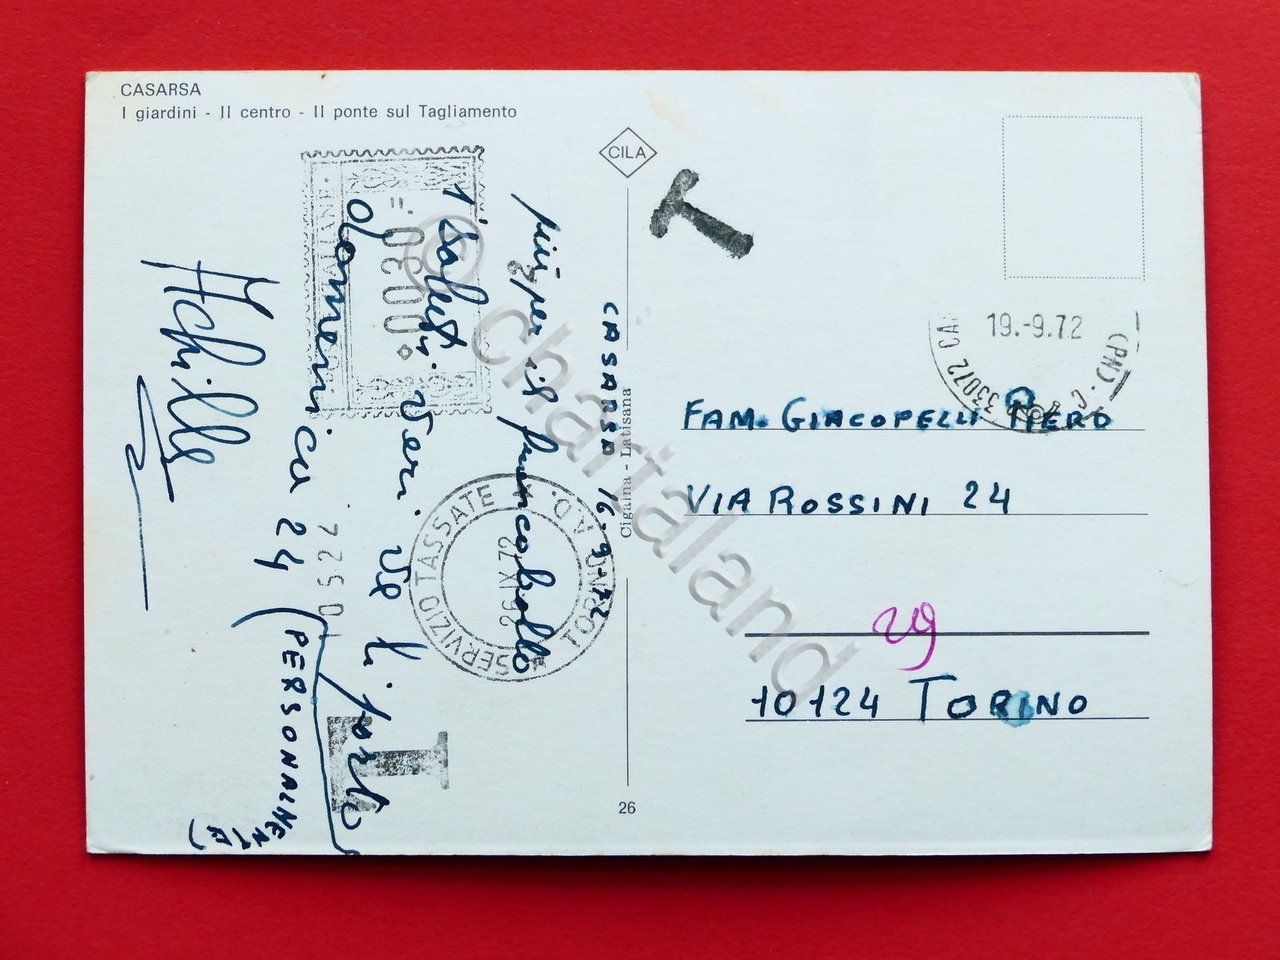 CASARSA
I giardini - Il centro - Il ponte sul Tagliamento
CILA
T
CASARSA 16-9-72
più per il francobollo
i saluti veri ve li porto
domenica 24 (PERSONALMENTE)
Achille
ITALIANE
0030.=
0527
SERVIZIO TASSATE
TORINO A.D.
29.IX.72
T
Cigaina - Latisana
26
19.-9.72
33072 CA
(PN). C.
FAM. GIACOPELLI PIERO
VIA ROSSINI 24
29
10124 TORINO
© chartaland